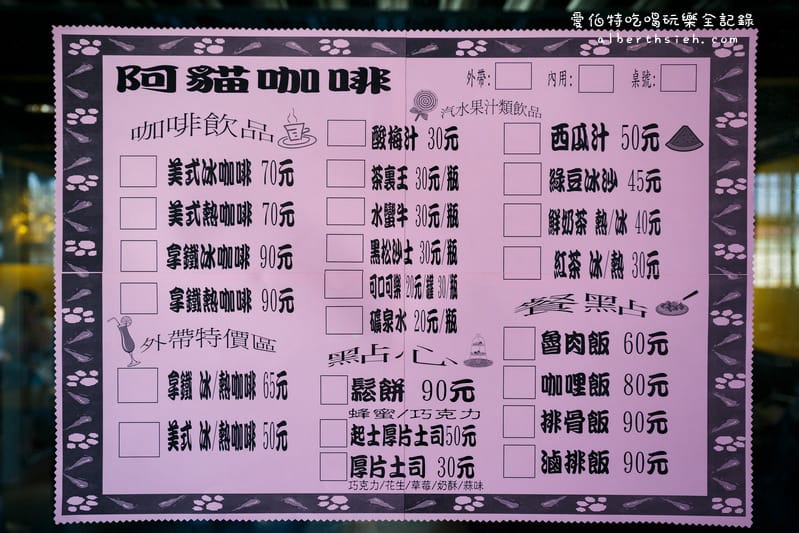 愛伯特吃喝玩樂全記錄
alberthsieh.com
阿貓咖啡
外帶: 內用: 桌號:
咖啡飲品
美式冰咖啡 70元
美式熱咖啡 70元
拿鐵冰咖啡 90元
拿鐵熱咖啡 90元
外帶特價區
拿鐵 冰/熱咖啡 65元
美式 冰/熱咖啡 50元
汽水果汁類飲品
酸梅汁 30元
茶裏王 30元/瓶
水蠻牛 30元/瓶
黑松沙士 30元/瓶
可口可樂 20元/罐 30/瓶
礦泉水 20元/瓶
西瓜汁 50元
綠豆冰沙 45元
鮮奶茶 熱/冰 40元
紅茶 冰/熱 30元
點心
鬆餅 90元
蜂蜜/巧克力
起士厚片土司50元
厚片土司 30元
巧克力/花生/草莓/奶酥/蒜味
餐點
魯肉飯 60元
咖哩飯 80元
排骨飯 90元
滷排飯 90元